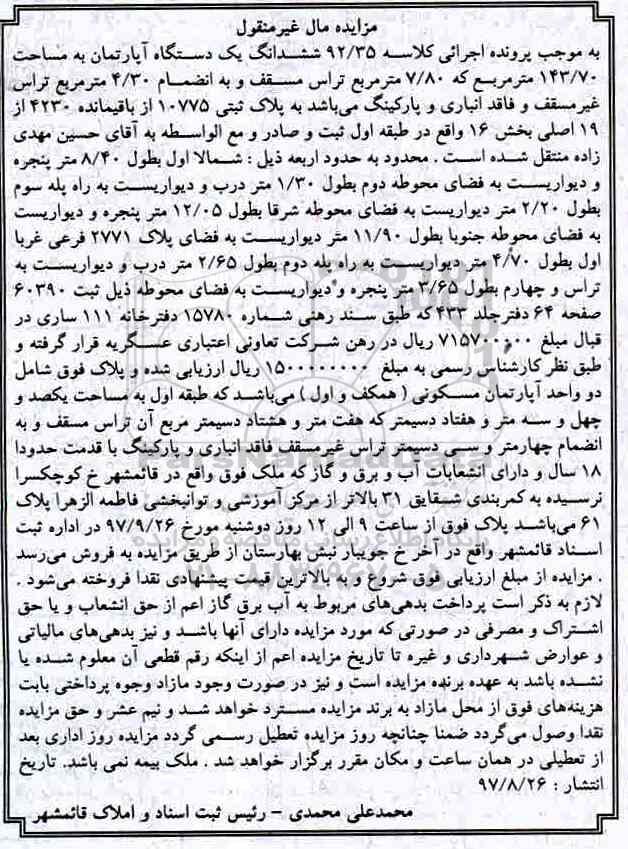 مزایده مال غیرمنقول
به موجب پرونده اجرائی کلاسه ۹۲/۳۵ ششدانگ یک دستگاه آپارتمان به مساحت
۱۴۳/۷۰ مترمربع که ۷/۸۰ مترمربع تراس مسقف و به انضمام ۴/۳۰ مترمربع تراس
غیرمسقف و فاقد انباری و پارکینگ می‌باشد به پلاک ثبتی ۱۰۷۷۵ از باقیمانده ۴۲۳۰ از
۱۹ اصلی بخش ۱۶ واقع در طبقه اول ثبت و صادر و مع الواسطه به آقای حسین مهدی
زاده منتقل شده است . محدود به حدود اربعه ذیل : شمالا اول بطول ۸/۴۰ متر پنجره
و دیواریست به فضای محوطه دوم بطول ۱/۳۰ متر درب و دیواریست به راه پله سوم
بطول ۲/۲۰ متر دیواریست به فضای محوطه شرقا بطول ۱۲/۰۵ متر پنجره و دیواریست
به فضای محوطه جنوبا بطول ۱۱/۹۰ متر دیواریست به فضای پلاک ۲۷۷۱ فرعی غربا
اول بطول ۴/۷۰ متر دیواریست به راه پله دوم بطول ۲/۶۵ متر درب و دیواریست به
تراس و چهارم بطول ۳/۶۵ متر پنجره و دیواریست به فضای محوطه ذیل ثبت ۶۰۳۹۰
صفحه ۶۴ دفترجلد ۴۳۳ که طبق سند رهنی شماره ۱۵۷۸۰ دفترخانه ۱۱۱ ساری در
قبال مبلغ ۷۱۵۷۰۰۰۰۰ ریال در رهن شرکت تعاونی اعتباری عسگریه قرار گرفته و
طبق نظر کارشناس رسمی به مبلغ ۱۵۰۰۰۰۰۰۰۰ ریال ارزیابی شده و پلاک فوق شامل
دو واحد آپارتمان مسکونی ( همکف و اول ) می‌باشد که طبقه اول به مساحت یکصد و
چهل و سه متر و هفتاد دسیمتر که هفت متر و هشتاد دسیمتر مربع آن تراس مسقف و به
انضمام چهارمتر و سی دسیمتر تراس غیرمسقف فاقد انباری و پارکینگ با قدمت حدودا
۱۸ سال و دارای انشعابات آب و برق و گاز که ملک فوق واقع در قائمشهر خ کوچکسرا
نرسیده به کمربندی شقایق ۳۱ بالاتر از مرکز آموزشی و توانبخشی فاطمه الزهرا پلاک
۶۱ می‌باشد پلاک فوق از ساعت ۹ الی ۱۲ روز دوشنبه مورخ ۹۷/۹/۲۶ در اداره ثبت
اسناد قائمشهر واقع در آخر خ جویبار نبش بهارستان از طریق مزایده به فروش می‌رسد
. مزایده از مبلغ ارزیابی فوق شروع و به بالاترین قیمت پیشنهادی نقدا فروخته می‌شود .
لازم به ذکر است پرداخت بدهی‌های مربوط به آب برق گاز اعم از حق انشعاب و یا حق
اشتراک و مصرفی در صورتی که مورد مزایده دارای آنها باشد و نیز بدهی‌های مالیاتی
و عوارض شهرداری و غیره تا تاریخ مزایده اعم از اینکه رقم قطعی آن معلوم شده یا
نشده باشد به عهده برنده مزایده است و نیز در صورت وجود مازاد وجوه پرداختی بابت
هزینه‌های فوق از محل مازاد به برند مزایده مسترد خواهد شد و نیم عشر و حق مزایده
نقدا وصول می‌گردد ضمنا چنانچه روز مزایده تعطیل رسمی گردد مزایده روز اداری بعد
از تعطیلی در همان ساعت و مکان مقرر برگزار خواهد شد . ملک بیمه نمی باشد. تاریخ
انتشار : ۹۷/۸/۲۶
محمدعلی محمدی – رئیس ثبت اسناد و املاک قائمشهر